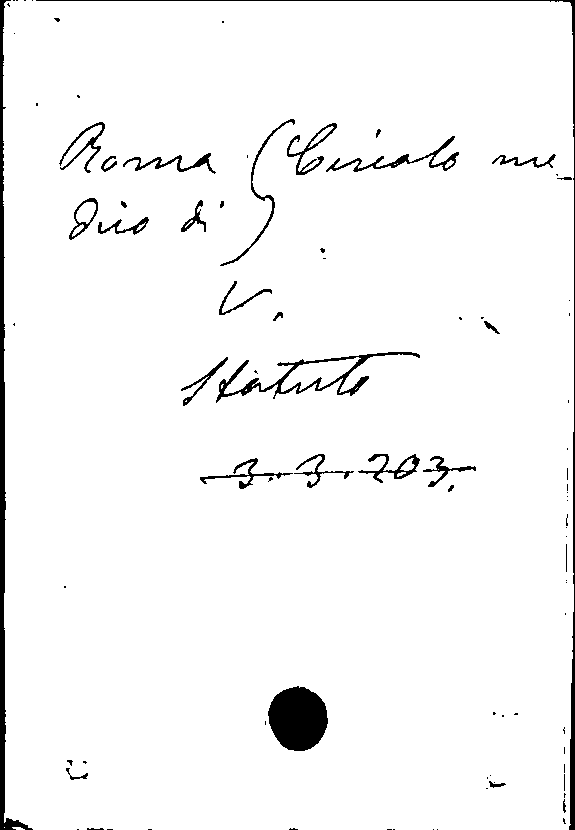 Roma (Circolo me
dico di)
V.
Statuto
3. 3. 203.